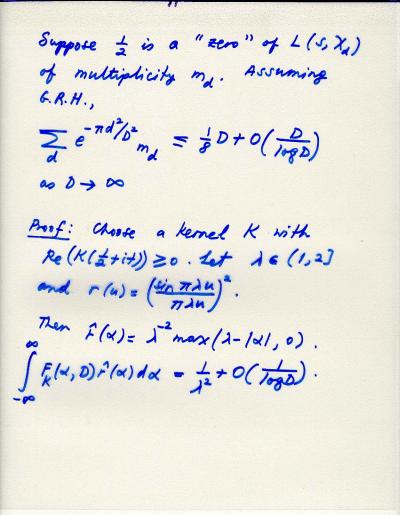 Suppose 1/2 is a "zero" of L(s, χ_d)
of multiplicity m_d. Assuming
G.R.H.,
∑_d e^{-πd²/D²} m_d ≤ 1/8 D + O(D/log D)
as D → ∞
Proof: Choose a kernel K with
Re(K(1/2+it)) ≥ 0. Let λ ∈ (1,2]
and r(u) = (sin πλu / πλu)².
Then r̂(α) = λ^{-2} max(λ-|α|, 0).
∫_{-∞}^{∞} F_K(α,D) r̂(α) dα = 1/λ² + O(1/log D).